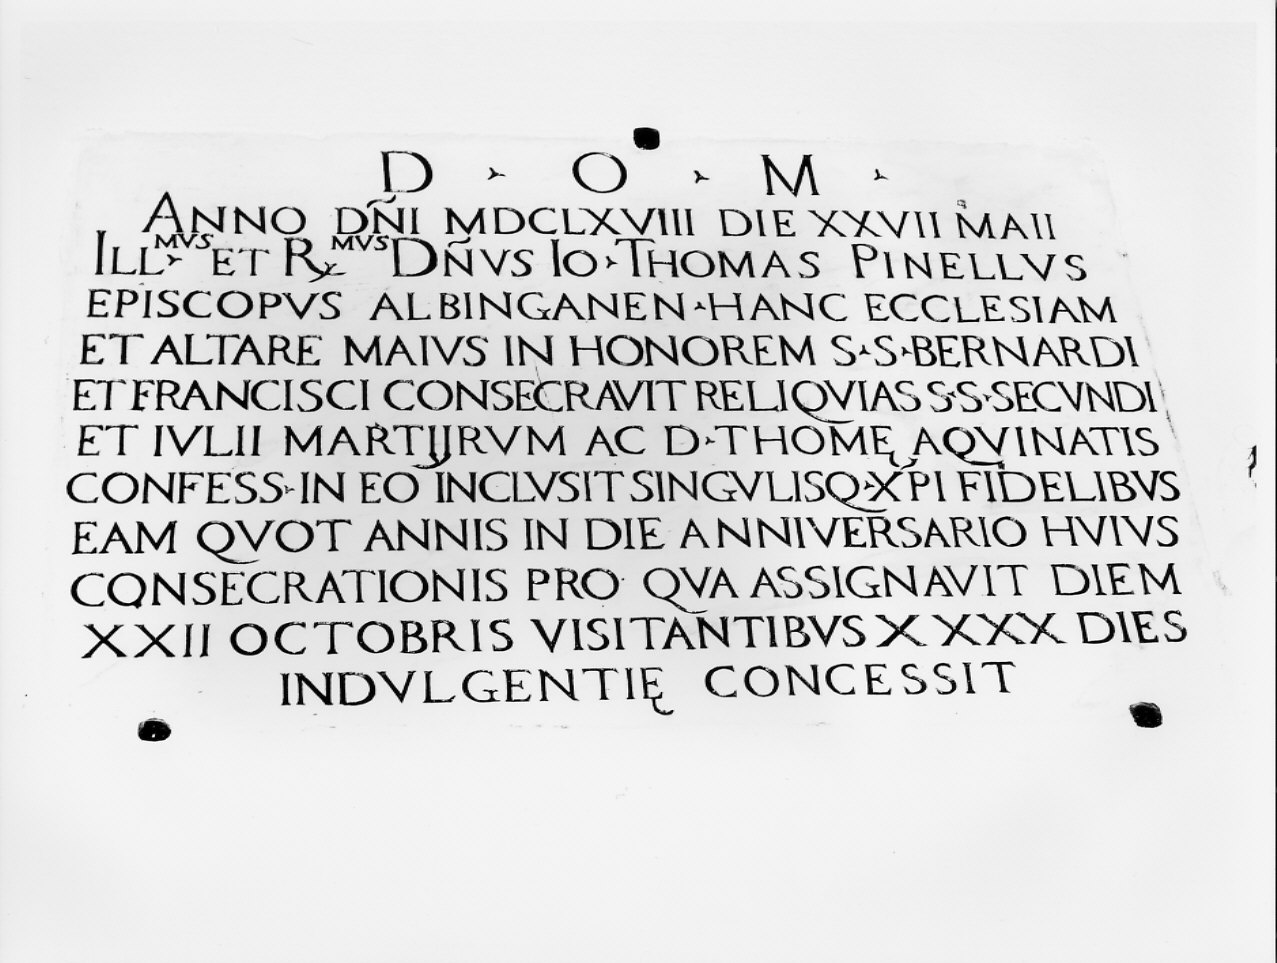 D · O · M ·
ANNO DÑI MDCLXVIII DIE XXVII MAII
ILL·MVS ET R·MVS DÑVS IO·THOMAS PINELLVS
EPISCOPVS ALBINGANEN·HANC ECCLESIAM
ET ALTARE MAIVS IN HONOREM S·S·BERNARDI
ET FRANCISCI CONSECRAVIT RELIQVIAS S·S·SECVNDI
ET IVLII MARTIJRVM AC D·THOMĘ AQVINATIS
CONFESS·IN EO INCLVSIT SINGVLISQ·X̃PI FIDELIBVS
EAM QVOT ANNIS IN DIE ANNIVERSARIO HVIVS
CONSECRATIONIS PRO QVA ASSIGNAVIT DIEM
XXII OCTOBRIS VISITANTIBVS XXXX DIES
INDVLGENTIĘ CONCESSIT